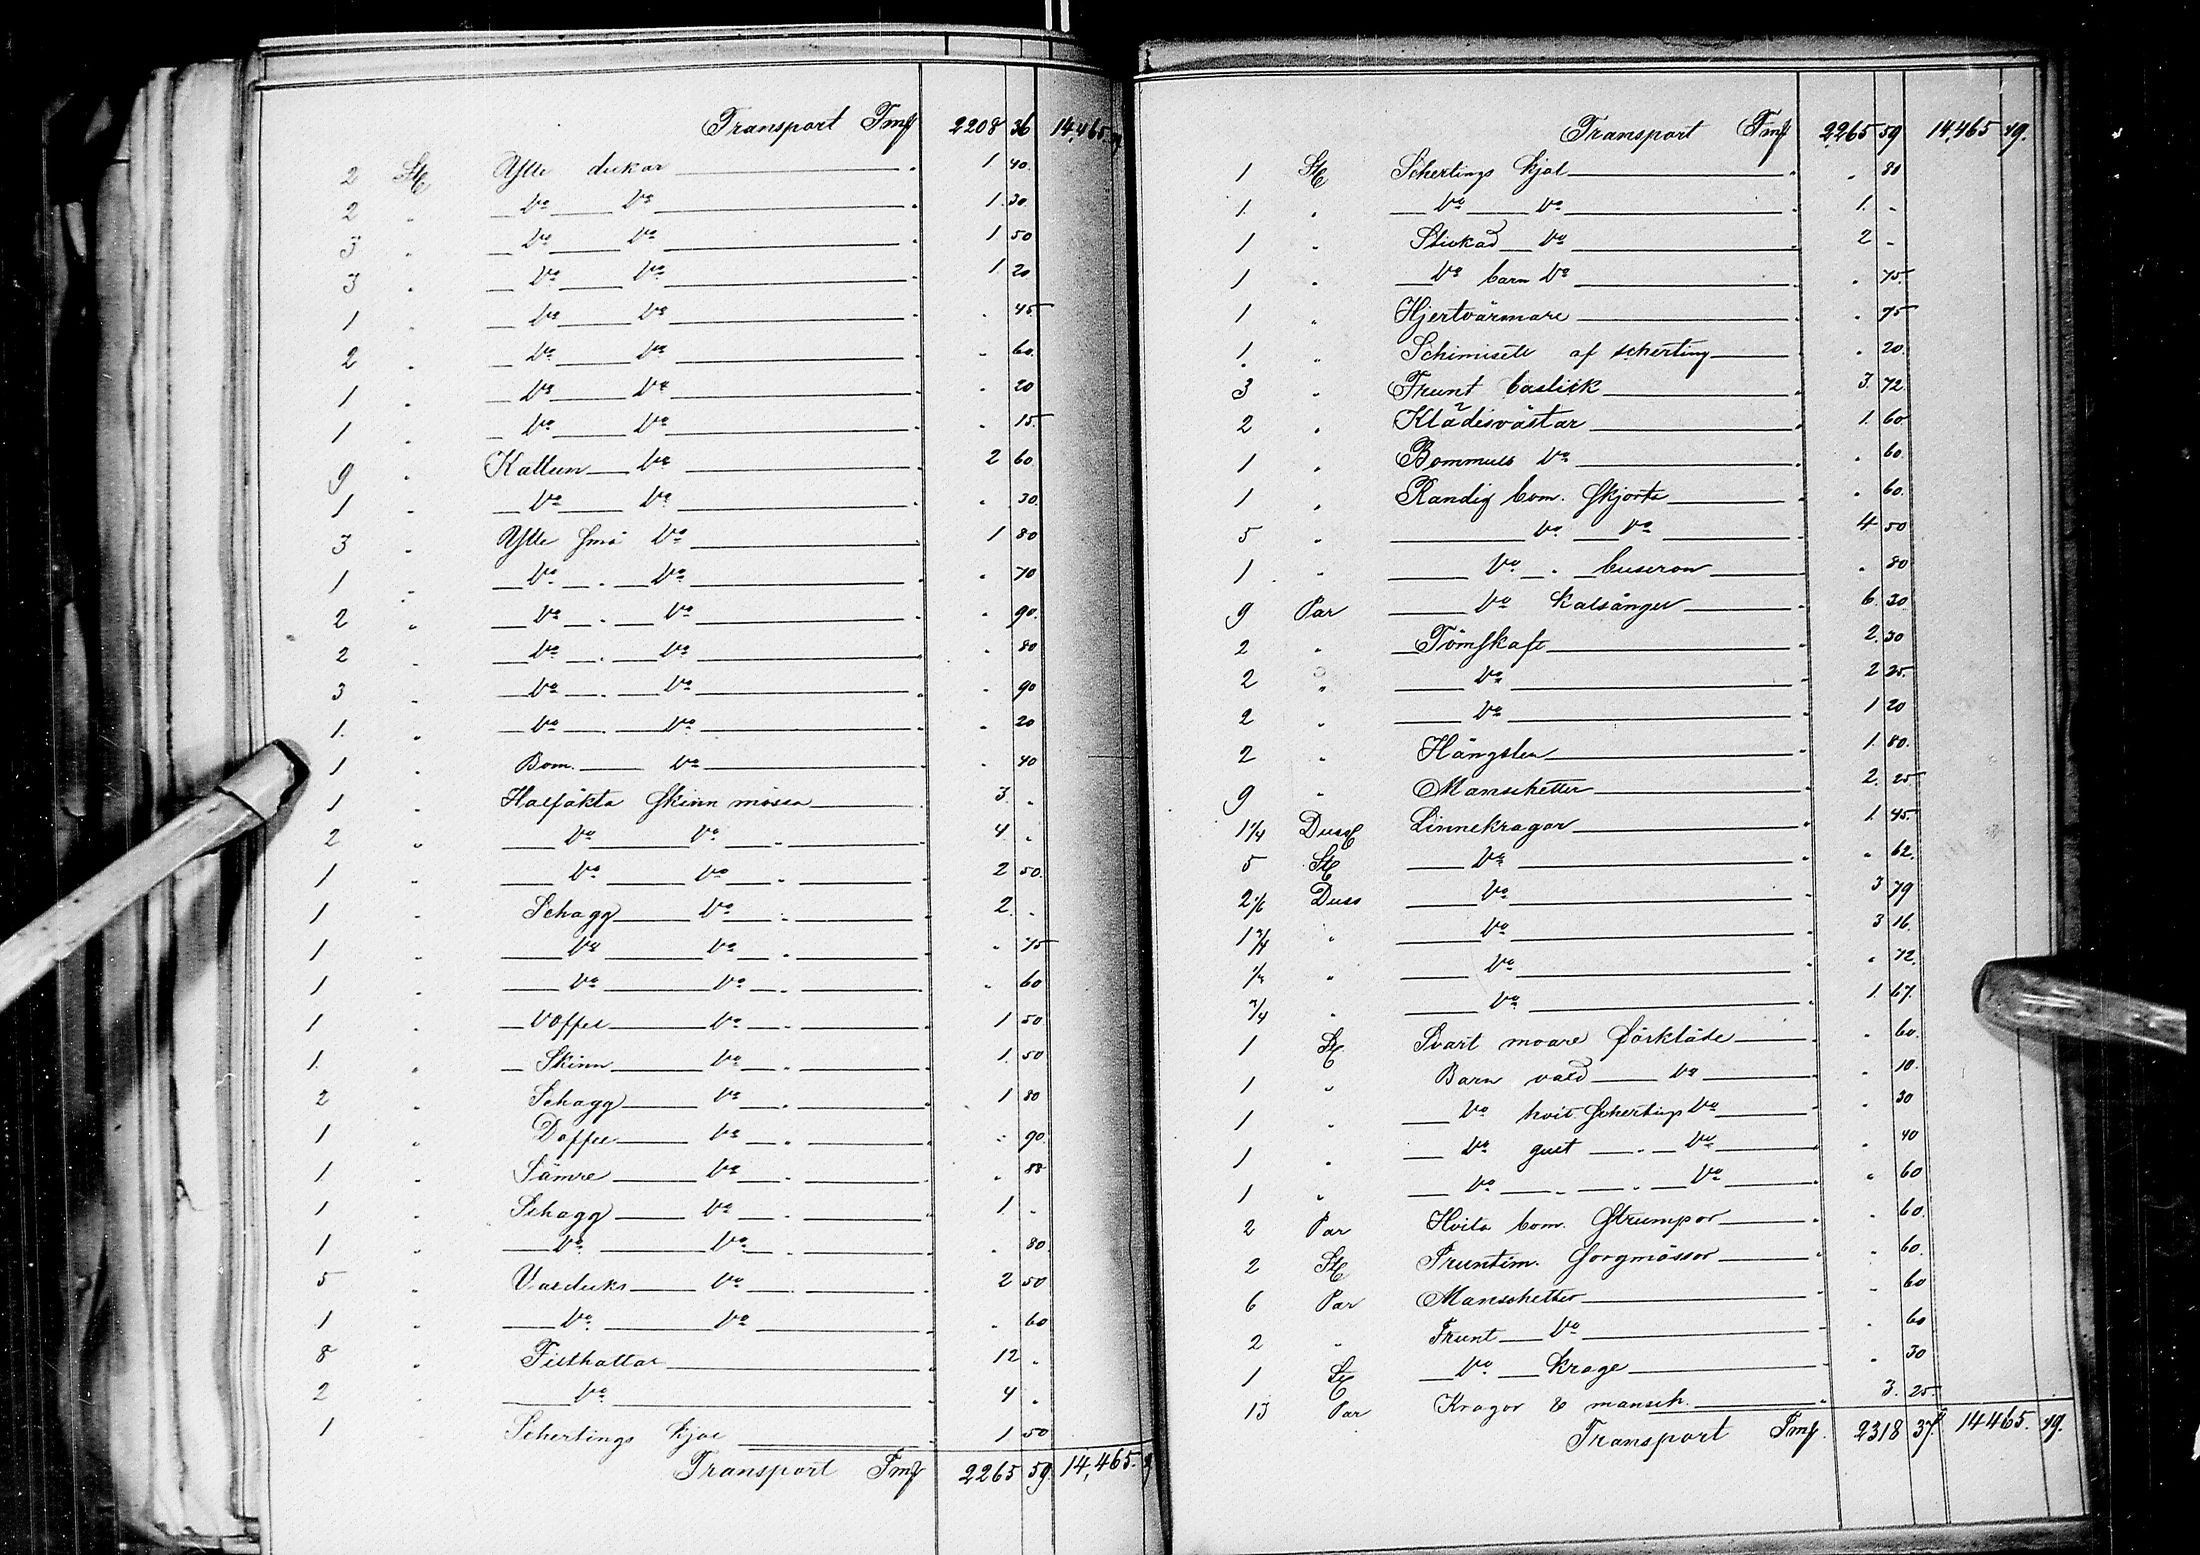 Transport Fmf 2208 36 14,465
2 St Ylle dukar 1 40
2 " Do Do 1 30
3 " Do Do 1 50
3 " Do Do 1 20
1 " Do Do " 45
2 " Do Do " 60
1 " Do Do " 20
1 " Do Do " 15
9 " Kattun Do 2 60
1 " Do Do " 30
3 " Ylle små Do 1 80
1 " Do " Do " 70
2 " Do " Do " 90
2 " Do " Do " 80
3 " Do " Do " 90
1 " Do " Do " 20
1 " Bom. Do " 40
1 " Skinn mössa 3 "
2 " Do Do " 4 "
1 " Do Do " 2 50
1 " Schagg Do " 2 "
1 " Do Do " " 75
1 " Do Do " " 60
1 " Doffel Do " 1 50
1 " Skinn Do " 1 50
2 " Schagg Do " 1 80
1 " Doffel Do " " 90
1 " Sämre Do " " 88
1 " Schagg Do " 1 "
1 " Do Do " " 80
5 " Vaxduks Do " 2 50
1 " Do Do " 60
8 " Filthattar 12 "
2 " Do 4 "
1 Schertings kjol 1 50
Transport Fmf 2265 59 14,465
Transport Fmf 2265 59 14,465 49
1 St Schertings kjol " 80
1 " Do Do 1 "
1 " Stickad Do 2 "
1 " Do barn Do " 75
1 " Hjertvärmare " 75
1 " Schimisett af scherting " 20
3 " Frunt baslick 3 72
2 " Klädisvästar 1 60
1 " Bommuls Do " 60
1 " Randig bom. skjorta " 60
5 " Do Do 4 50
1 " Do " buseron " 80
9 Par Do kalsånger 6 30
2 " Tömskaft 2 30
2 " Do 2 25
2 " Do 1 20
2 " Hängslen 1 80
9 " Manschetter 2 25
1 1/4 Duss Linnekragar 1 45
5 St Do " 62
2 1/6 Duss Do 3 79
1 3/4 " Do 3 16
" Do " 72
3/4 " Do 1 67
1 St Svart moare förkläde " 60
1 " Barn Do " 10
1 " Do hvit Schertings Do " 30
1 " Do gult " Do " 40
1 " Do " " Do " 60
2 Par Hvita bom. strumpor " 60
2 St Fruntim. sorgmössor " 60
6 Par Manschetter " 60
2 " Frunt Do " 60
1 St Do krage " 30
13 Par Kragor & mansch. 3 25
Transport Fmf. 2318 37 14465 49